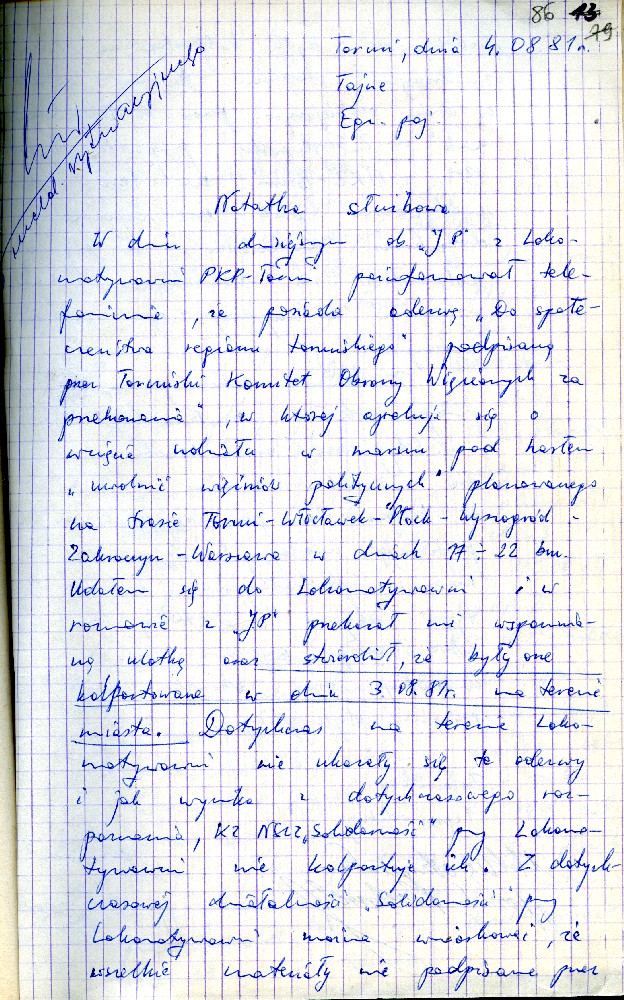 86 13
79
Toruń, dnia 4.08 81r.
Tajne
Egz. poj.
Notatka służbowa
W dniu dzisiejszym ob. „JP" z Loko-
motywowni PKP-Toruń poinformował tele-
fonicznie, że posiada odezwę „Do społe-
czeństwa regionu toruńskiego" podpisaną
przez Toruński Komitet Obrony Więzionych za
przekonania", w której apeluje się o
wzięcie udziału w marszu pod hasłem
„uwolnić więźniów politycznych" planowanego
na trasie Toruń-Włocławek-Płock-Wyszogród-
Zakroczym-Warszawa w dniach 17÷22 bm.
Udałem się do Lokomotywowni i w
rozmowie z „JP" przekazał mi wspomnia-
ną ulotkę oraz stwierdził, że były one
kolportowane w dniu 3.08.81r. na terenie
miasta. Dotychczas na terenie Loko-
motywowni nie ukazały się te odezwy
i jak wynika z dotychczasowego roz-
poznania, KZ NSZZ „Solidarność" przy Lokomo-
tywowni nie kolportuje ich. Z dotych-
czasowej działalności „Solidarności" przy
Lokomotywowni można wnioskować, że
wszelkie materiały nie podpisane przez